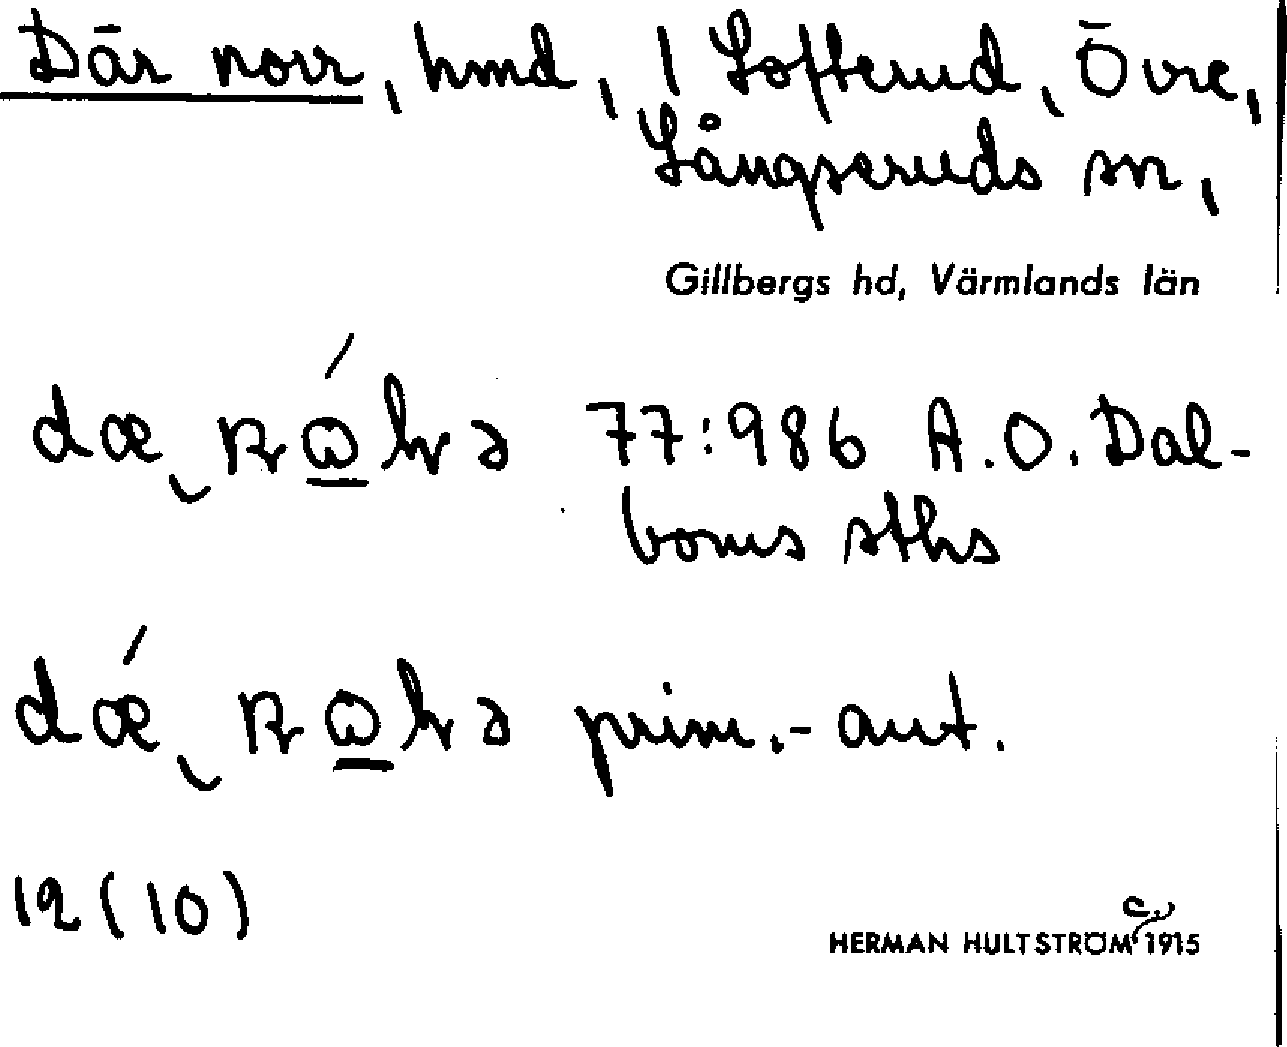 Där norr, hmd, 1 Lofterud, Övre,
Långseruds sn,
Gillbergs hd, Värmlands län
77:986 A.O. Dal-
boms sths
prim.-aut.
12 (10)
C.
HERMAN HULTSTRÖM 1915